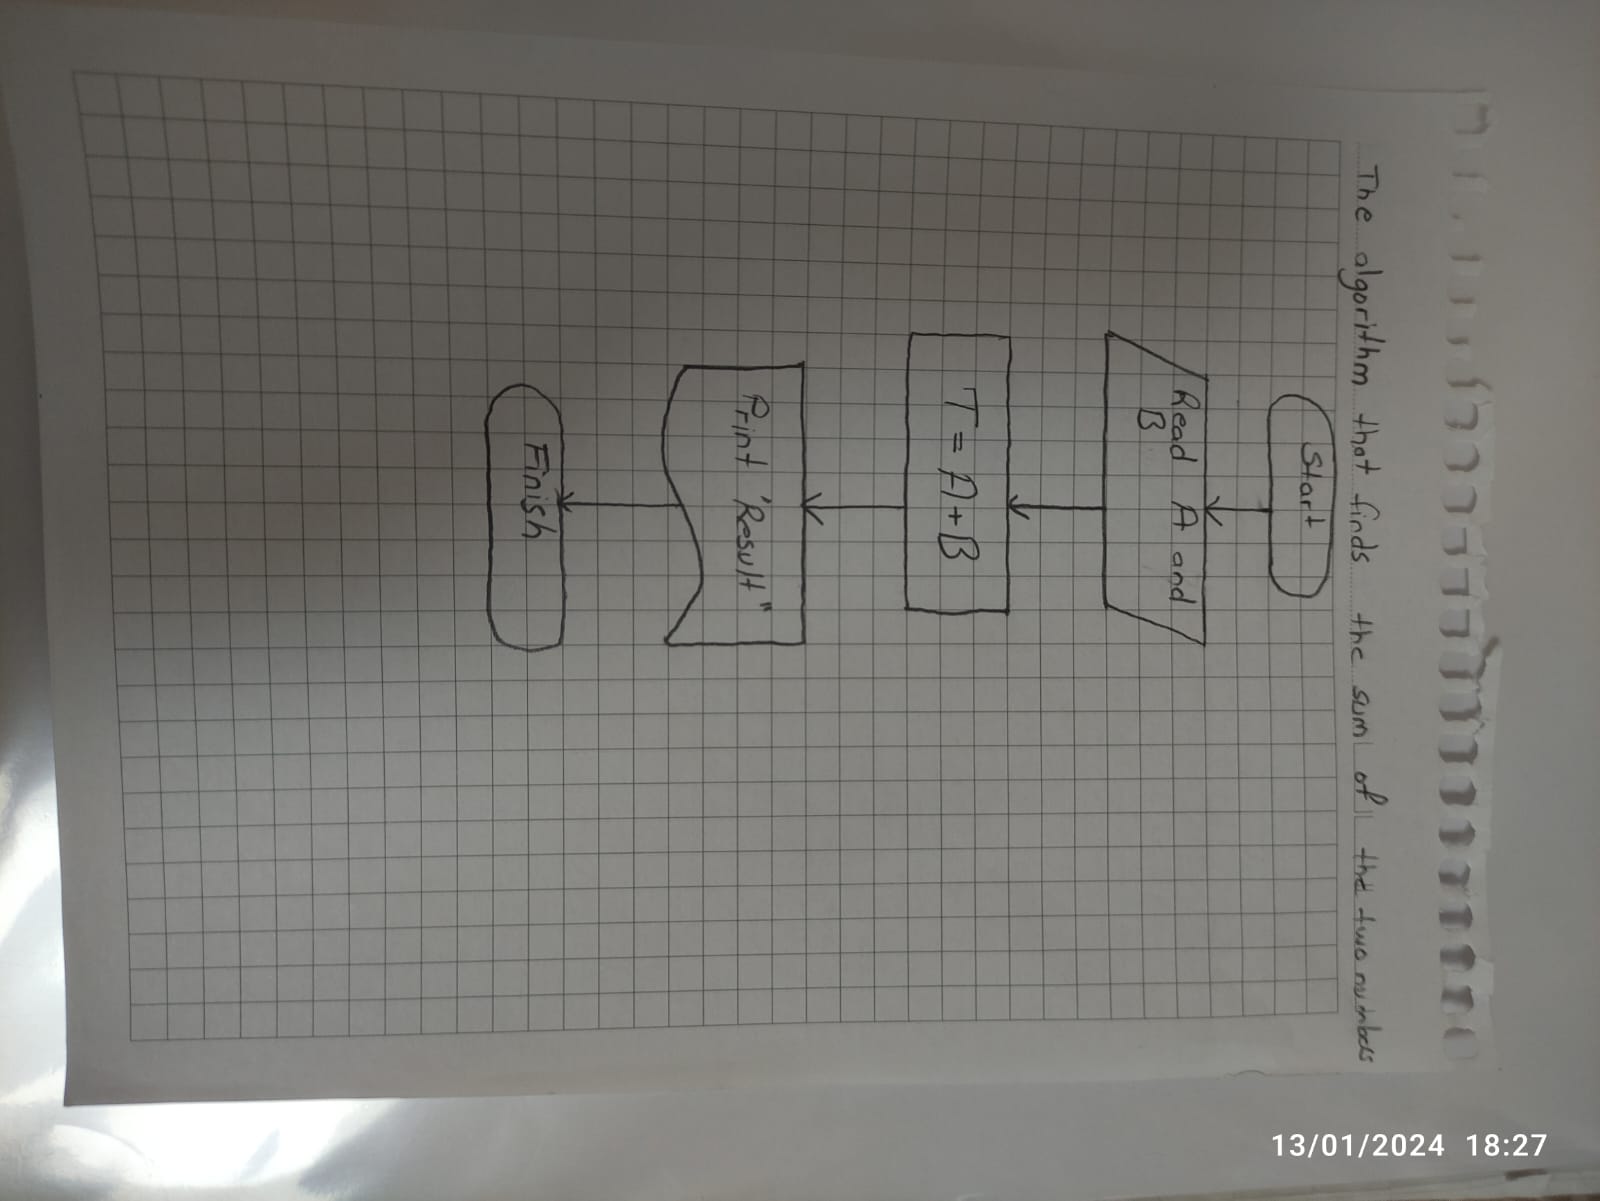 The algorithm that finds the sum of the two numbers
Start
Read A and
B
T = A + B
Print "Result"
Finish
13/01/2024 18:27